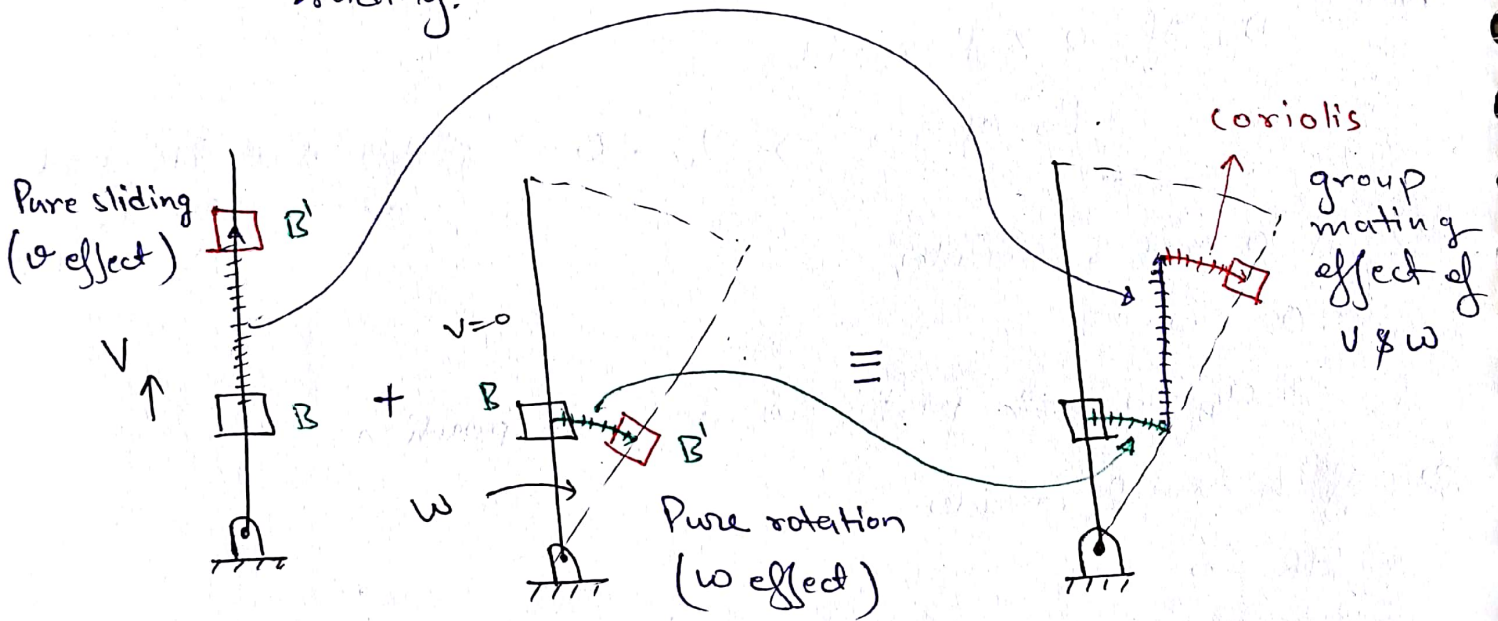 Pure sliding
(v effect)
B'
V
B
+
v=0
B
B'
ω
Pure rotation
(ω effect)
≡
coriolis
group
mating
effect of
v & ω